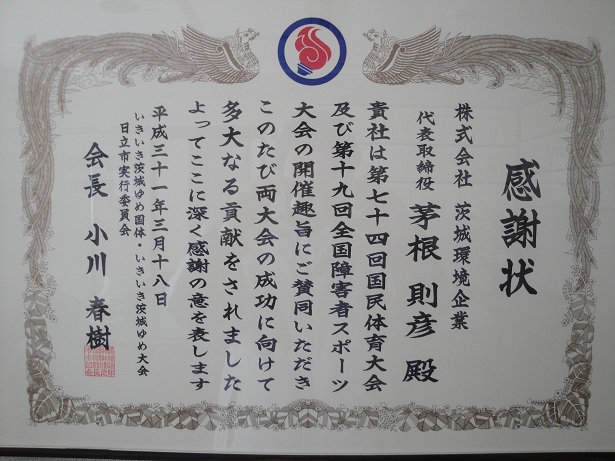 感謝状
株式会社 茨城環境企業
代表取締役 茅根 則彦 殿
貴社は第七十四回国民体育大会
及び第十九回全国障害者スポーツ
大会の開催趣旨にご賛同いただき
このたび両大会の成功に向けて
多大なる貢献をされました
よってここに深く感謝の意を表します
平成三十一年三月十八日
いきいき茨城ゆめ国体 いきいき茨城ゆめ大会
日立市実行委員会
会長 小川 春樹